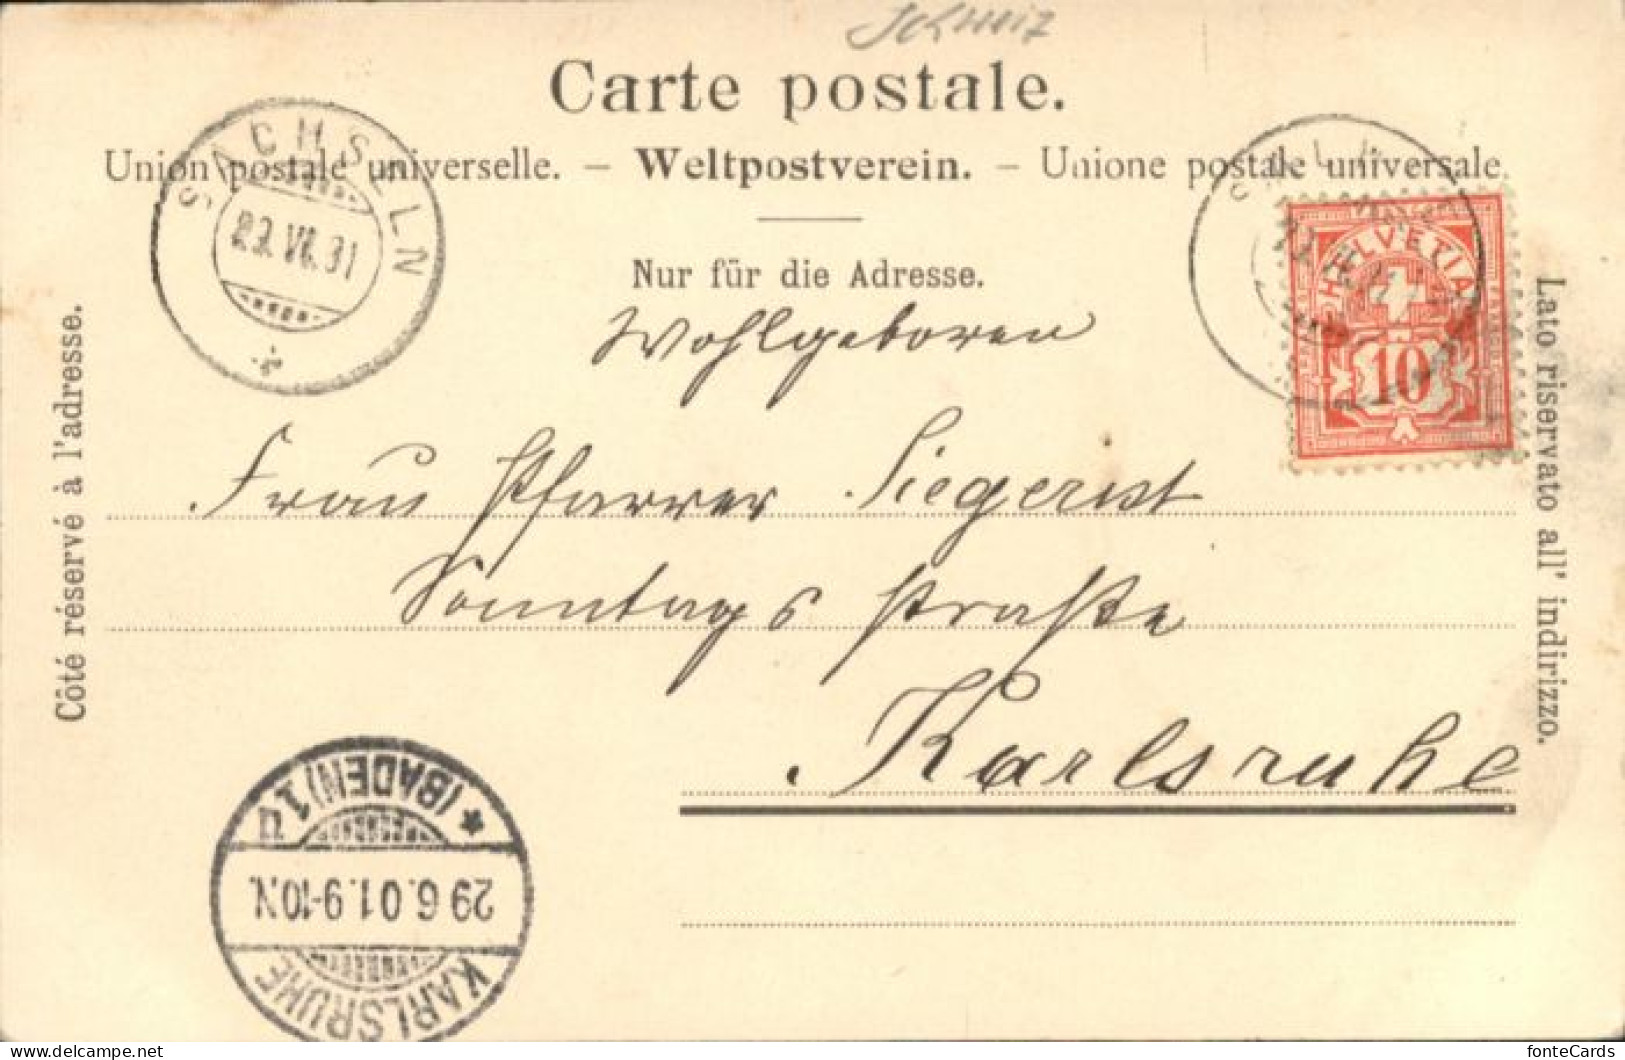 Schweiz
Carte postale.
Union postale universelle. – Weltpostverein. – Unione postale universale.
Nur für die Adresse.
SACHSELN
HELVETIA
10
Côté réservé à l'adresse.
Lato riservato all' indirizzo.
Wohlgeboren
Frau Pfarrer Siegerist
Sonntagsstraße
Karlsruhe
KARLSRUHE
29 6.01.9-10N.
* (BADEN) 1 u
fonteCards